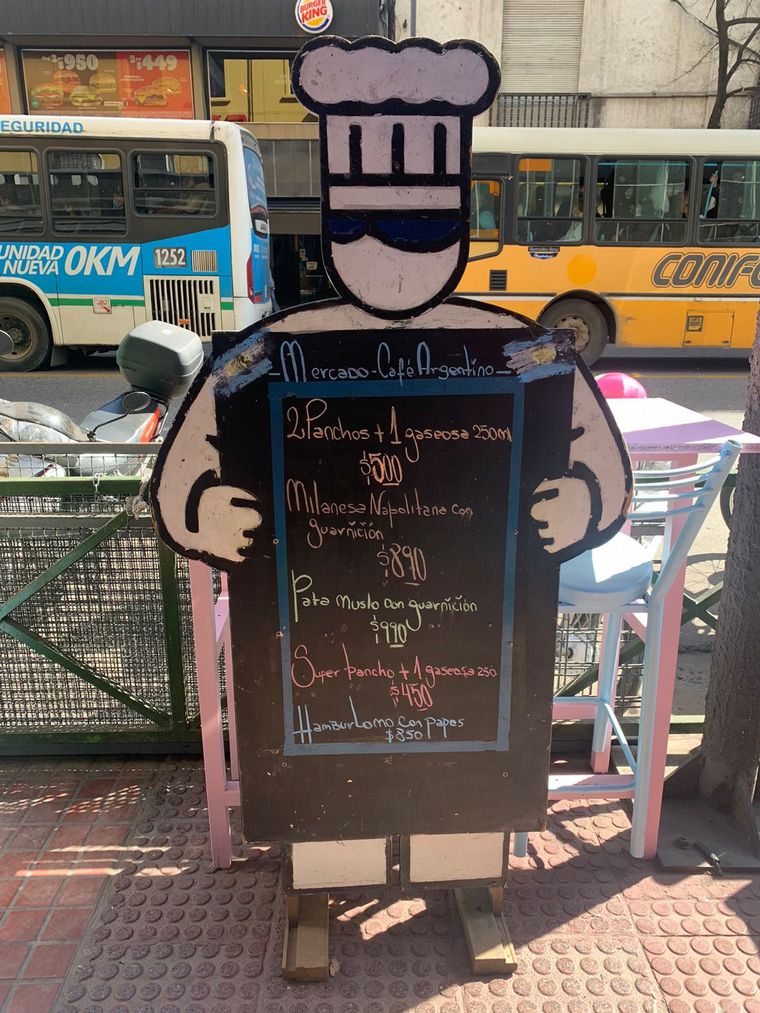 BURGER KING
2x $950
2x $449
SEGURIDAD
UNIDAD
NUEVA 0KM
1252
CONIF
- Mercado - Café Argentino -
2 Panchos + 1 gaseosa 250ml
$500
Milanesa Napolitana con
guarnición
$890
Pata Muslo con guarnición
$990
Super pancho + 1 gaseosa 250
$450
HamburLomo con papas
$850